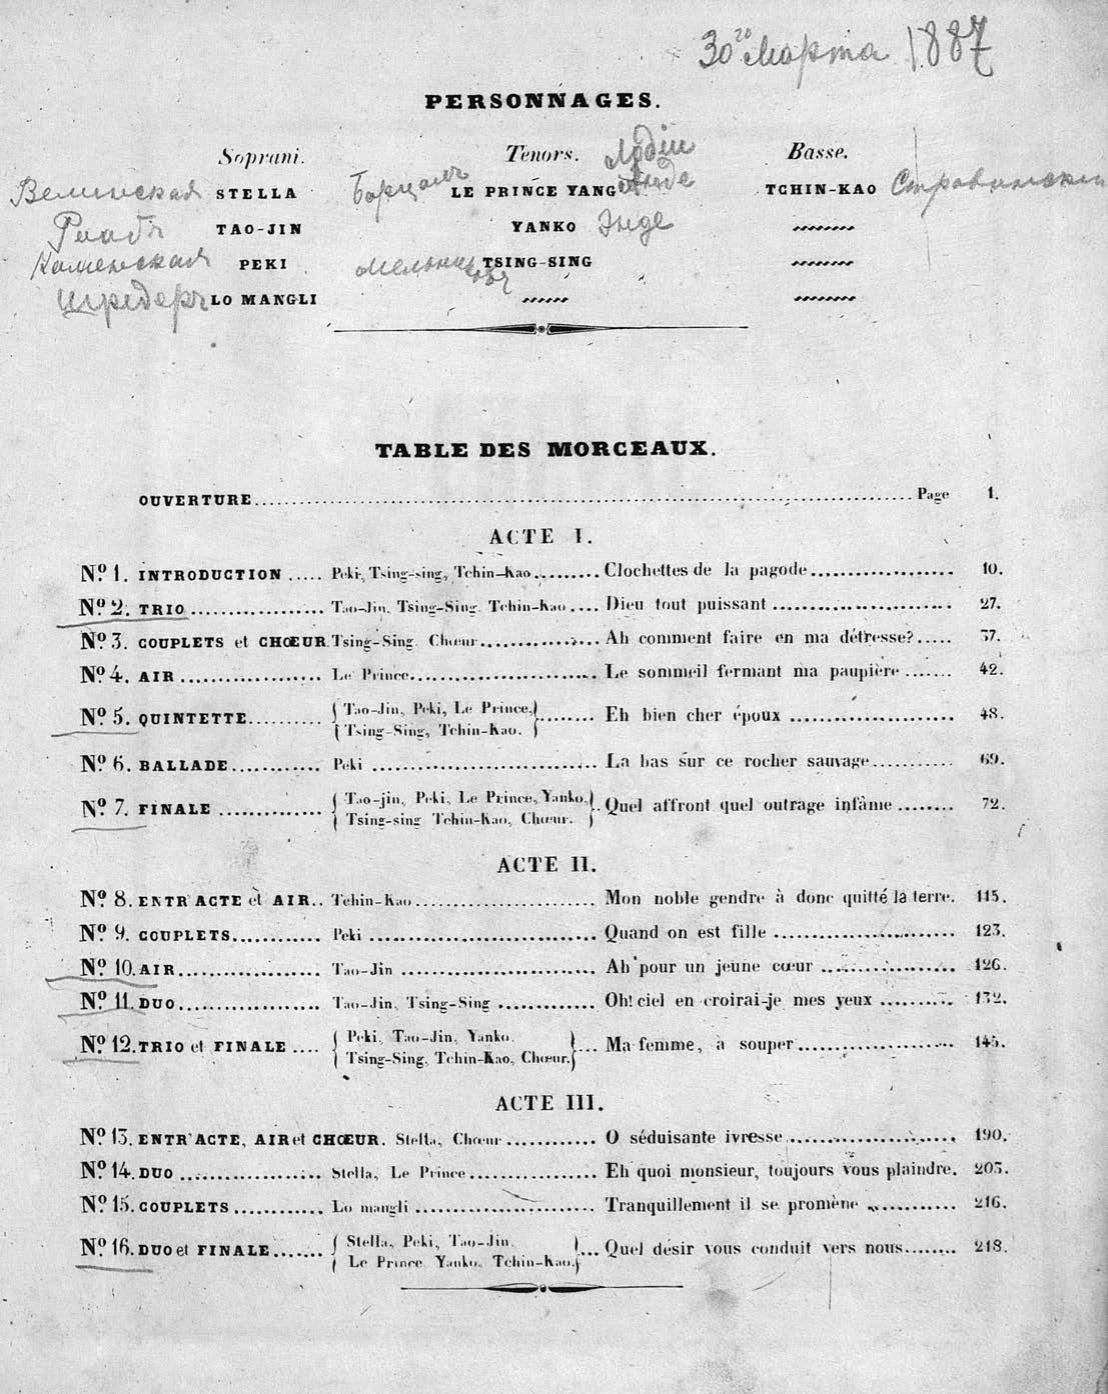 30 20 Марта 1887
PERSONNAGES.
Soprani. Tenors. Лодіи Basse.
Велинская STELLA Борцалъ LE PRINCE YANG Энде TCHIN-KAO Стравинский
Раабъ TAO-JIN YANKO Энде
Каменская PEKI Мельниковъ TSING-SING
Шредеръ LO MANGLI
TABLE DES MORCEAUX.
OUVERTURE.......... Page 1.
ACTE I.
Nº 1. INTRODUCTION ..... Peki, Tsing-sing, Tchin-Kao......... Clochettes de la pagode.......... 10.
Nº 2. TRIO.......... Tao-Jin, Tsing-Sing, Tchin-Kao.... Dieu tout puissant .......... 27.
Nº 3. COUPLETS et CHŒUR. Tsing-Sing, Chœur.......... Ah comment faire en ma détresse?..... 37.
Nº 4. AIR.......... Le Prince.......... Le sommeil fermant ma paupière ....... 42.
Nº 5. QUINTETTE.......... { Tao-Jin, Peki, Le Prince, }......... Eh bien cher époux .......... 48.
{ Tsing-Sing, Tchin-Kao. }
Nº 6. BALLADE.......... Peki .......... La bas sur ce rocher sauvage.......... 69.
Nº 7. FINALE .......... { Tao-jin, Peki, Le Prince, Yanko, }.. Quel affront quel outrage infâme ........ 72.
{ Tsing-sing Tchin-Kao, Chœur. }
ACTE II.
Nº 8. ENTR'ACTE et AIR.. Tchin-Kao.......... Mon noble gendre à donc quitté la terre. 115.
Nº 9. COUPLETS.......... Peki .......... Quand on est fille .......... 123.
Nº 10. AIR.......... Tao-Jin .......... Ah pour un jeune cœur .......... 126.
Nº 11. DUO.......... Tao-Jin, Tsing-Sing .......... Oh! ciel en croirai-je mes yeux .......... 132.
Nº 12. TRIO et FINALE .... { Peki, Tao-Jin, Yanko, }... Ma femme, à souper.......... 145.
{ Tsing-Sing, Tchin-Kao, Chœur. }
ACTE III.
Nº 13. ENTR'ACTE, AIR et CHŒUR. Stella, Chœur .......... O séduisante ivresse.......... 190.
Nº 14. DUO .......... Stella, Le Prince.......... Eh quoi monsieur, toujours vous plaindre. 203.
Nº 15. COUPLETS.......... Lo mangli .......... Tranquillement il se promène .......... 216.
Nº 16. DUO et FINALE....... { Stella, Peki, Tao-Jin, }... Quel désir vous conduit vers nous........ 218.
{ Le Prince Yanko, Tchin-Kao. }